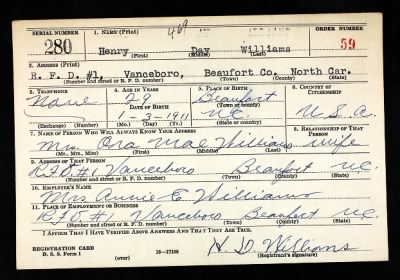 SERIAL NUMBER 1. NAME (Print) 469 ORDER NUMBER
280 Henry Day Williams 59
(First) (Middle) (Last)
2. ADDRESS (Print)
R. F. D. #1, Vanceboro, Beaufort Co. North Car.
(Number and street or R. F. D. number) (Town) (County) (State)
3. TELEPHONE 4. AGE IN YEARS 5. PLACE OF BIRTH 6. COUNTRY OF CITIZENSHIP
None 29 Beaufort
DATE OF BIRTH (Town or county)
1-3-1911 N.C. U.S.A.
(Exchange) (Number) (Mo.) (Day) (Yr.) (State or country)
7. NAME OF PERSON WHO WILL ALWAYS KNOW YOUR ADDRESS 8. RELATIONSHIP OF THAT PERSON
Mrs. Ora Mae Williams wife
(Mr., Mrs., Miss) (First) (Middle) (Last)
9. ADDRESS OF THAT PERSON
R.F.D. #1 Vanceboro Beaufort N.C.
(Number and street or R. F. D. number) (Town) (County) (State)
10. EMPLOYER'S NAME
Mrs Annie E Williams
11. PLACE OF EMPLOYMENT OR BUSINESS
R.F.D #1 Vanceboro Beaufort N.C.
(Number and street or R. F. D. number) (Town) (County) (State)
I AFFIRM THAT I HAVE VERIFIED ABOVE ANSWERS AND THAT THEY ARE TRUE.
REGISTRATION CARD
D. S. S. Form 1 16—17105 H. D. Williams
(Registrant's signature)